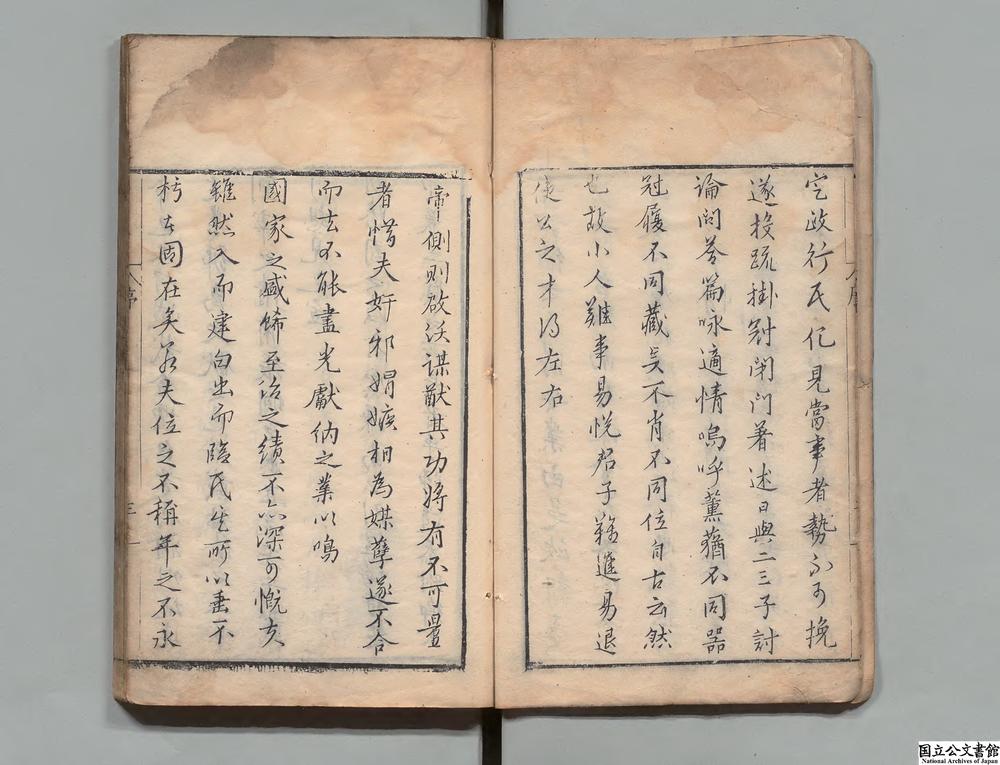 定政行民化見當事者勢不可挽
遂投疏掛冠閉門著述日與二三子討
論問答篇咏適情嗚呼薰蕕不同器
冠履不同藏賢不肖不同位自古云然
也故小人難事易悅君子難進易退
使公之才得左右
帝側則啟沃謀猷其功將有不可量
者惜夫奸邪媢嫉相為媒孽遂不合
而去不能盡光獻納之業以鳴
國家之盛餙至治之績不亦深可慨夫
雖然入而建白出而臨民其所以垂不
朽者固在矣若夫位之不稱年之不永
序
三
国立公文書館
National Archives of Japan